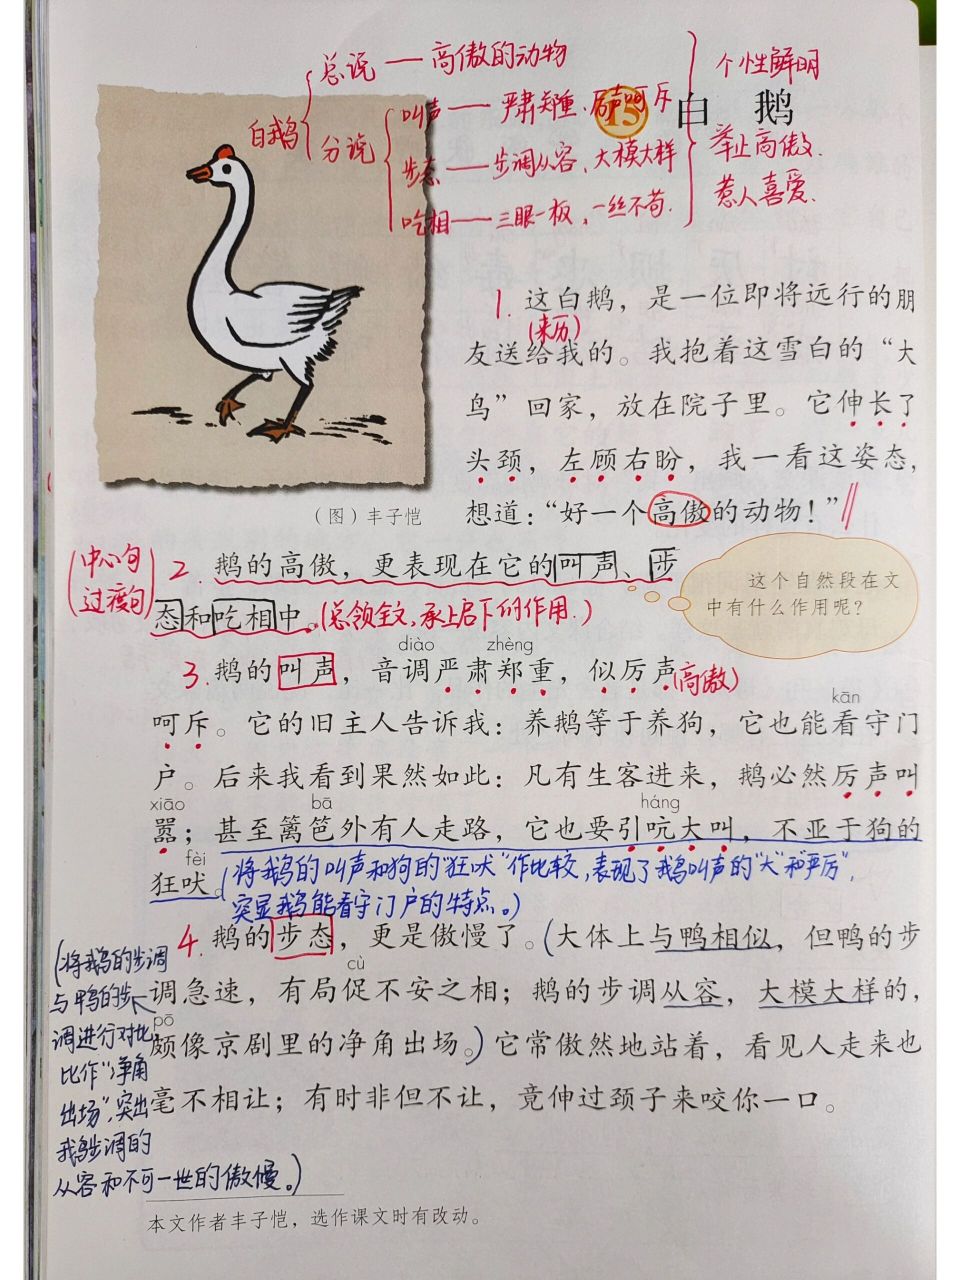 总说 — 高傲的动物
白鹅
分说
叫声 — 严肃郑重、厉声呵斥
步态 — 步调从容、大模大样
吃相 — 三眼一板,一丝不苟.
个性鲜明
举止高傲.
惹人喜爱.
15 白 鹅
(图)丰子恺
1. 这白鹅,是一位即将远行的朋
(来历)
友送给我的。我抱着这雪白的“大
鸟”回家,放在院子里。它伸长了
头颈,左顾右盼,我一看这姿态,
想道:“好一个高傲的动物!”
(中心句
过渡句)
2. 鹅的高傲,更表现在它的叫声、步
态和吃相中。(总领全文,承上启下的作用.)
这个自然段在文
中有什么作用呢?
diào zhèng
3. 鹅的叫声,音调严肃郑重,似厉声(高傲)
kān
呵斥。它的旧主人告诉我:养鹅等于养狗,它也能看守门
户。后来我看到果然如此:凡有生客进来,鹅必然厉声叫
xiāo bā háng
嚣;甚至篱笆外有人走路,它也要引吭大叫,不亚于狗的
fèi
狂吠。(将鹅的叫声和狗的“狂吠”作比较,表现了鹅叫声的“大”和“严厉”,
突显鹅能看守门户的特点。)
4. 鹅的步态,更是傲慢了。(大体上与鸭相似,但鸭的步
cù
调急速,有局促不安之相;鹅的步调从容,大模大样的,
pō
颇像京剧里的净角出场。)它常傲然地站着,看见人走来也
毫不相让;有时非但不让,竟伸过颈子来咬你一口。
(将鹅的步调
与鸭的步
调进行对比,
比作“净角
出场”,突出
鹅步调的
从容和不可一世的傲慢。)
本文作者丰子恺,选作课文时有改动。